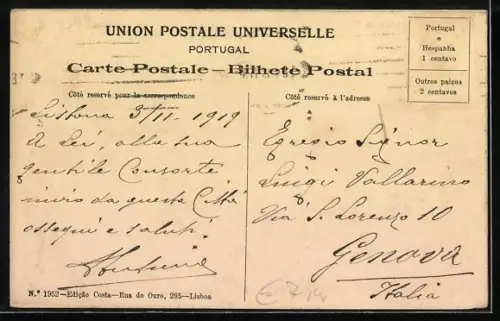 UNION POSTALE UNIVERSELLE
PORTUGAL
Carte Postale — Bilhete Postal
Portugal
e
Hespanha
1 centavo
Outros paizes
2 centavos
Côté reservé pour la correspondence
Lisbona 3/II. 1919
A Lei, alla sua
gentile Consorte
invio da questa Città
ossequi e saluti.
Côté reservé à l'adresse
Egregio Signor
Luigi Vallarino
Via S. Lorenzo 10
Genova
Italia
N.º 1952—Edição Costa—Rua do Ouro, 295—Lisboa